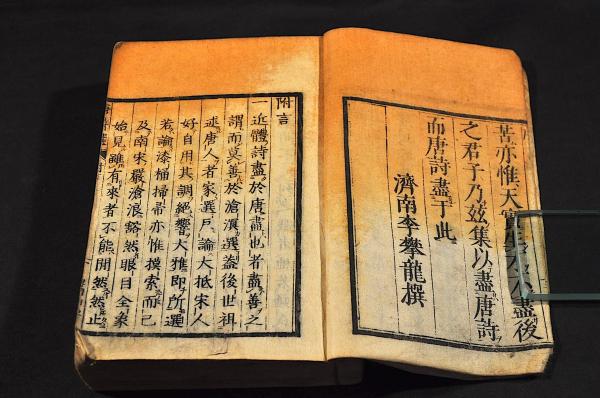 苦亦惟天實生才不盡後
之君子乃茲集以盡唐詩
而唐詩盡于此
濟南李攀龍撰
附言
一近體詩盡於唐盡也者盡善之
謂而莫善於滄溟選蓋後世祖
述唐人者家選戶論大抵宋人
好自用其調絕響大雅即所選
若論漆桶掃帚亦惟摸索而已
及南宋嚴滄浪豁然眼目全象
始見雖有來者不能間然然止